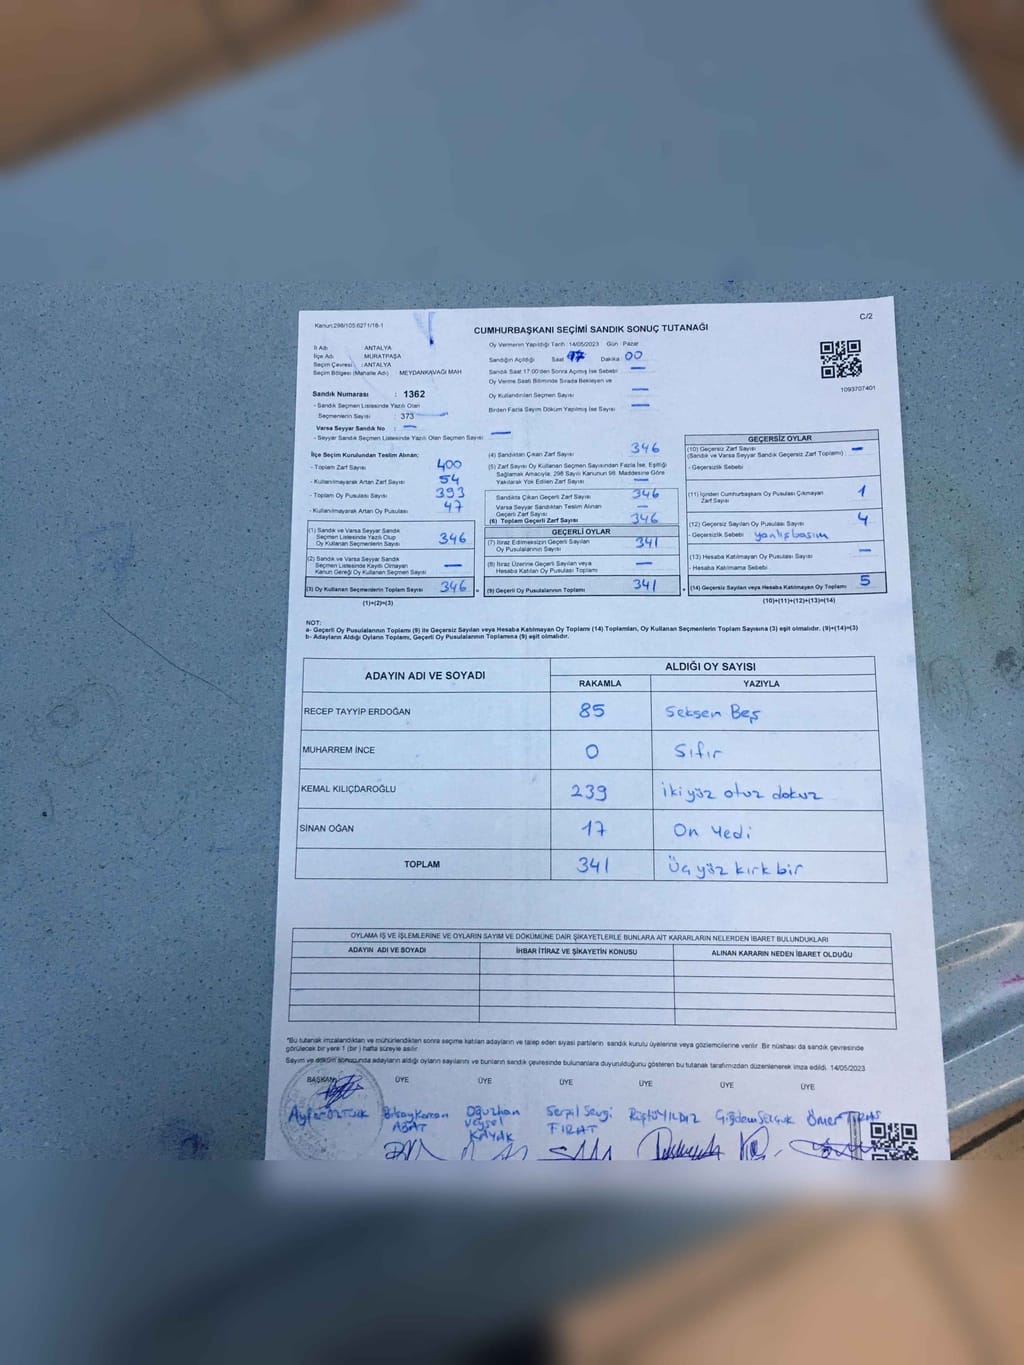 Kanun:298/105:6271/18-1
C/2
CUMHURBAŞKANI SEÇİMİ SANDIK SONUÇ TUTANAĞI
İl Adı: ANTALYA
İlçe Adı: MURATPAŞA
Seçim Çevresi: ANTALYA
Seçim Bölgesi (Mahalle Adı): MEYDANKAVAĞI MAH
Sandık Numarası : 1362
- Sandık Seçmen Listesinde Yazılı Olan
Seçmenlerin Sayısı : 373
Varsa Seyyar Sandık No : —
- Seyyar Sandık Seçmen Listesinde Yazılı Olan Seçmen Sayısı: —
Oy Vermenin Yapıldığı Tarih: 14/05/2023 Gün Pazar
Sandığın Açıldığı Saat 17 Dakika 00
Sandık Saat 17:00'den Sonra Açılmış İse Sebebi —
Oy Verme Saati Bitiminde Sırada Bekleyen ve
Oy Kullandırılan Seçmen Sayısı —
Birden Fazla Sayım Döküm Yapılmış İse Sayısı —
1093707401
İlçe Seçim Kurulundan Teslim Alınan;
- Toplam Zarf Sayısı 400
- Kullanılmayarak Artan Zarf Sayısı 54
- Toplam Oy Pusulası Sayısı 393
- Kullanılmayarak Artan Oy Pusulası 47
(1) Sandık ve Varsa Seyyar Sandık
Seçmen Listesinde Yazılı Olup
Oy Kullanan Seçmenlerin Sayısı 346
(2) Sandık ve Varsa Seyyar Sandık
Seçmen Listesinde Kayıtlı Olmayan
Kanun Gereği Oy Kullanan Seçmen Sayısı —
(3) Oy Kullanan Seçmenlerin Toplam Sayısı 346
(1)+(2)=(3)
(4) Sandıktan Çıkan Zarf Sayısı 346
(5) Zarf Sayısı Oy Kullanan Seçmen Sayısından Fazla İse, Eşitliği
Sağlamak Amacıyla, 298 Sayılı Kanunun 98. Maddesine Göre
Yakılarak Yok Edilen Zarf Sayısı —
Sandıkta Çıkan Geçerli Zarf Sayısı 346
Varsa Seyyar Sandıktan Teslim Alınan
Geçerli Zarf Sayısı —
(6) Toplam Geçerli Zarf Sayısı 346
GEÇERLİ OYLAR
(7) İtiraz Edilmeksizin Geçerli Sayılan
Oy Pusulalarının Sayısı 341
(8) İtiraz Üzerine Geçerli Sayılan veya
Hesaba Katılan Oy Pusulası Toplamı —
(9) Geçerli Oy Pusulalarının Toplamı 341
GEÇERSİZ OYLAR
(10) Geçersiz Zarf Sayısı —
(Sandık ve Varsa Seyyar Sandık Geçersiz Zarf Toplamı)
- Geçersizlik Sebebi
(11) İçinden Cumhurbaşkanı Oy Pusulası Çıkmayan
Zarf Sayısı 1
(12) Geçersiz Sayılan Oy Pusulası Sayısı 4
- Geçersizlik Sebebi: yanlış basım
(13) Hesaba Katılmayan Oy Pusulası Sayısı —
- Hesaba Katılmama Sebebi
(14) Geçersiz Sayılan veya Hesaba Katılmayan Oy Toplamı 5
(10)+(11)+(12)+(13)=(14)
NOT:
a- Geçerli Oy Pusulalarının Toplamı (9) ile Geçersiz Sayılan veya Hesaba Katılmayan Oy Toplamı (14) Toplamları, Oy Kullanan Seçmenlerin Toplam Sayısına (3) eşit olmalıdır. (9)+(14)=(3)
b- Adayların Aldığı Oyların Toplamı, Geçerli Oy Pusulalarının Toplamına (9) eşit olmalıdır.
ADAYIN ADI VE SOYADI ALDIĞI OY SAYISI
RAKAMLA YAZIYLA
RECEP TAYYİP ERDOĞAN 85 Seksen Beş
MUHARREM İNCE 0 Sıfır
KEMAL KILIÇDAROĞLU 239 iki yüz otuz dokuz
SİNAN OĞAN 17 On Yedi
TOPLAM 341 Üç yüz kırk bir
OYLAMA İŞ VE İŞLEMLERİNE VE OYLARIN SAYIM VE DÖKÜMÜNE DAİR ŞİKAYETLERLE BUNLARA AİT KARARLARIN NELERDEN İBARET BULUNDUKLARI
ADAYIN ADI VE SOYADI İHBAR İTİRAZ VE ŞİKAYETİN KONUSU ALINAN KARARIN NEDEN İBARET OLDUĞU
"Bu tutanak imzalandıktan ve mühürlendikten sonra seçime katılan adayların ve talep eden siyasi partilerin sandık kurulu üyelerine veya gözlemcilerine verilir. Bir nüshası da sandık çevresinde
görülecek bir yere 1 (bir) hafta süreyle asılır.
Sayım ve döküm sonucunda adayların aldığı oyların sayılarını ve bunların sandık çevresinde bulunanlara duyurulduğunu gösteren bu tutanak tarafımızdan düzenlenerek imza edildi. 14/05/2023
BAŞKAN ÜYE ÜYE ÜYE ÜYE ÜYE ÜYE
Ayfer ÖZTÜRK
Oğuzhan
Veysel
KAYAK
Serpil Sevgi
FIRAT
Çiğdem Selçuk
Ömer